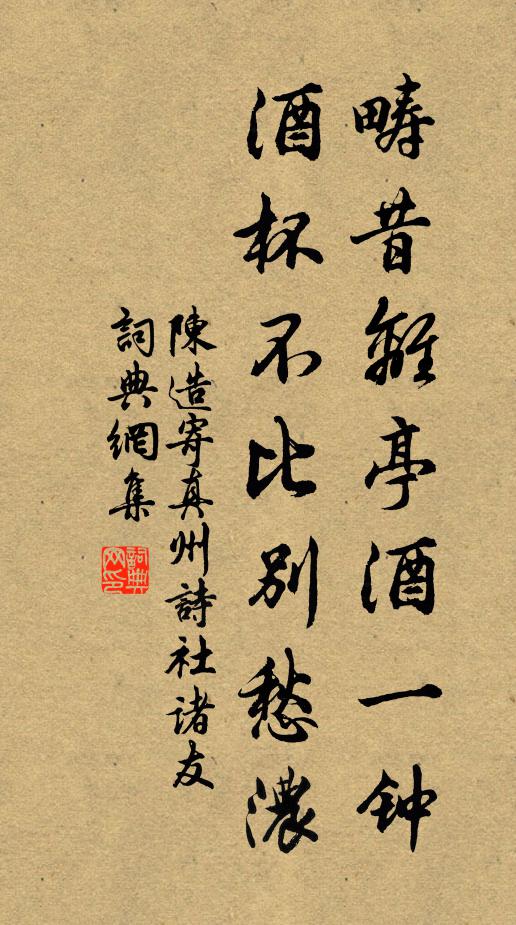 疇昔離亭酒一钟
酒杯不比別愁濃
陳造寄真州詩社诸友
詞典網集
詞典网印